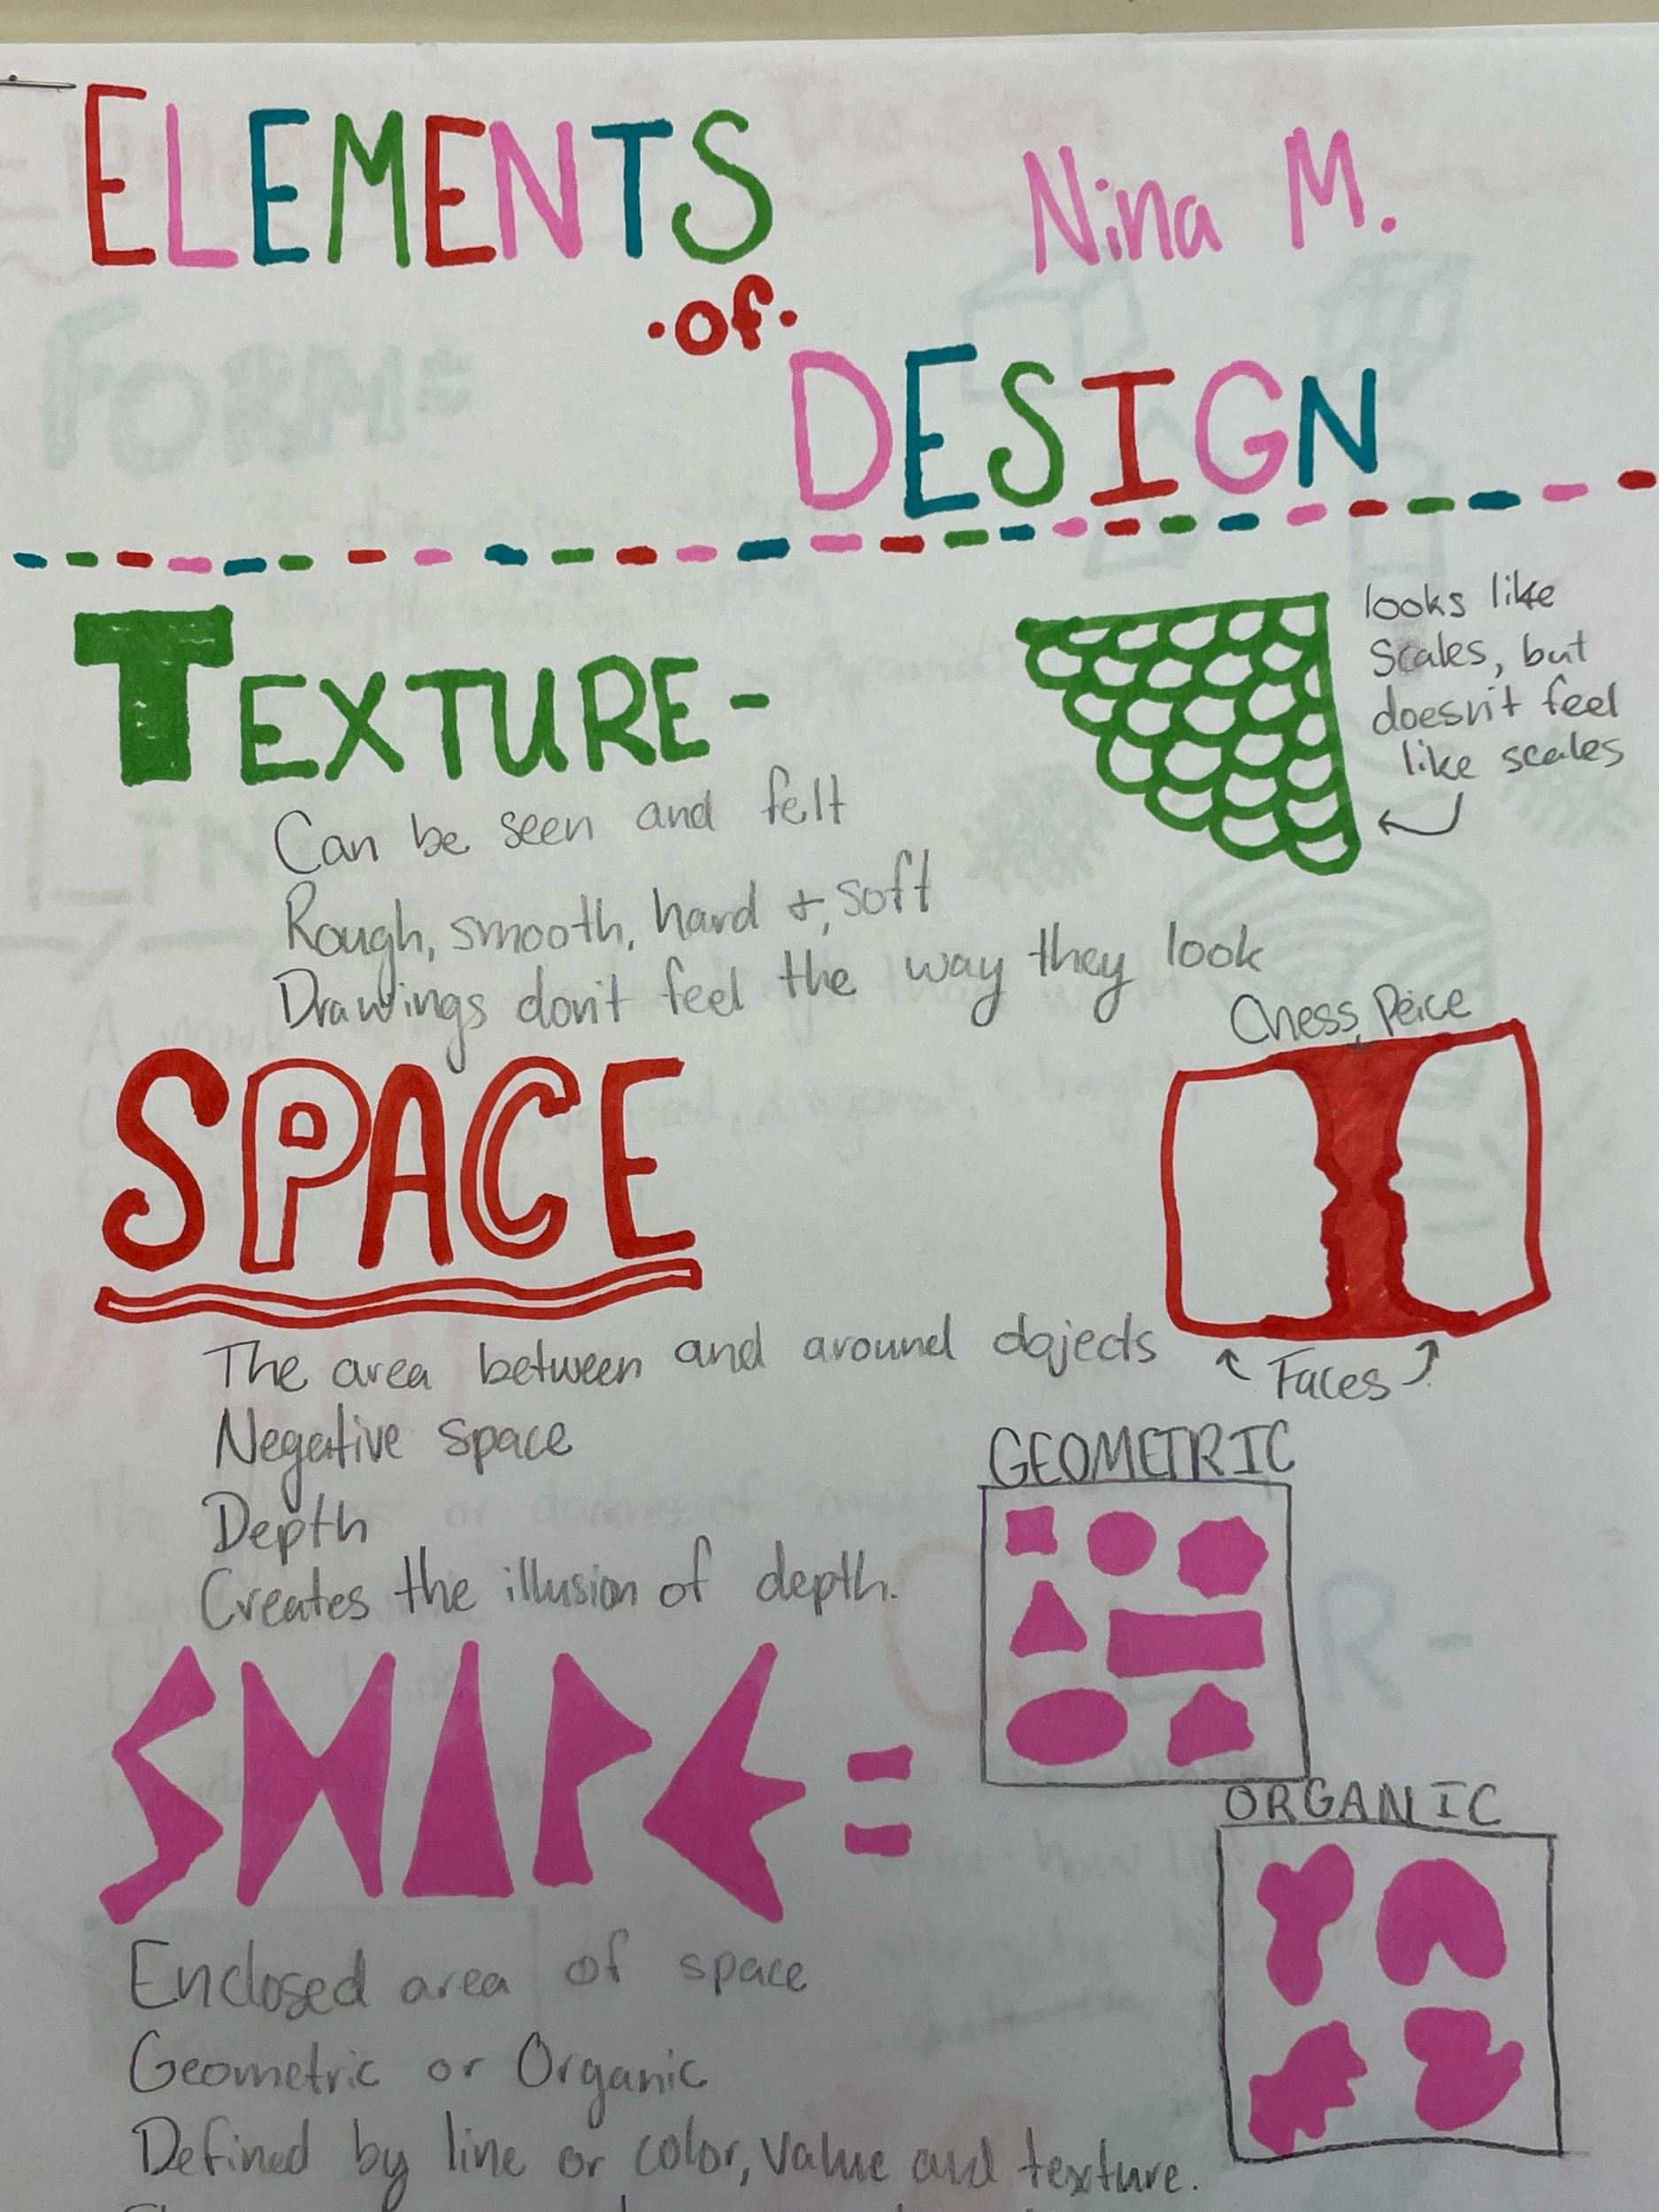 ELEMENTS
Nina M.
·of·
DESIGN
TEXTURE-
looks like
scales, but
doesn't feel
like scales
Can be seen and felt
Rough, smooth, hard +, soft
Drawings don't feel the way they look
Chess Peice
SPACE
The area between and around objects
Faces
Negative space
Depth
Creates the illusion of depth.
GEOMETRIC
SHAPE =
ORGANIC
Enclosed area of space
Geometric or Organic
Defined by line or color, value and texture.